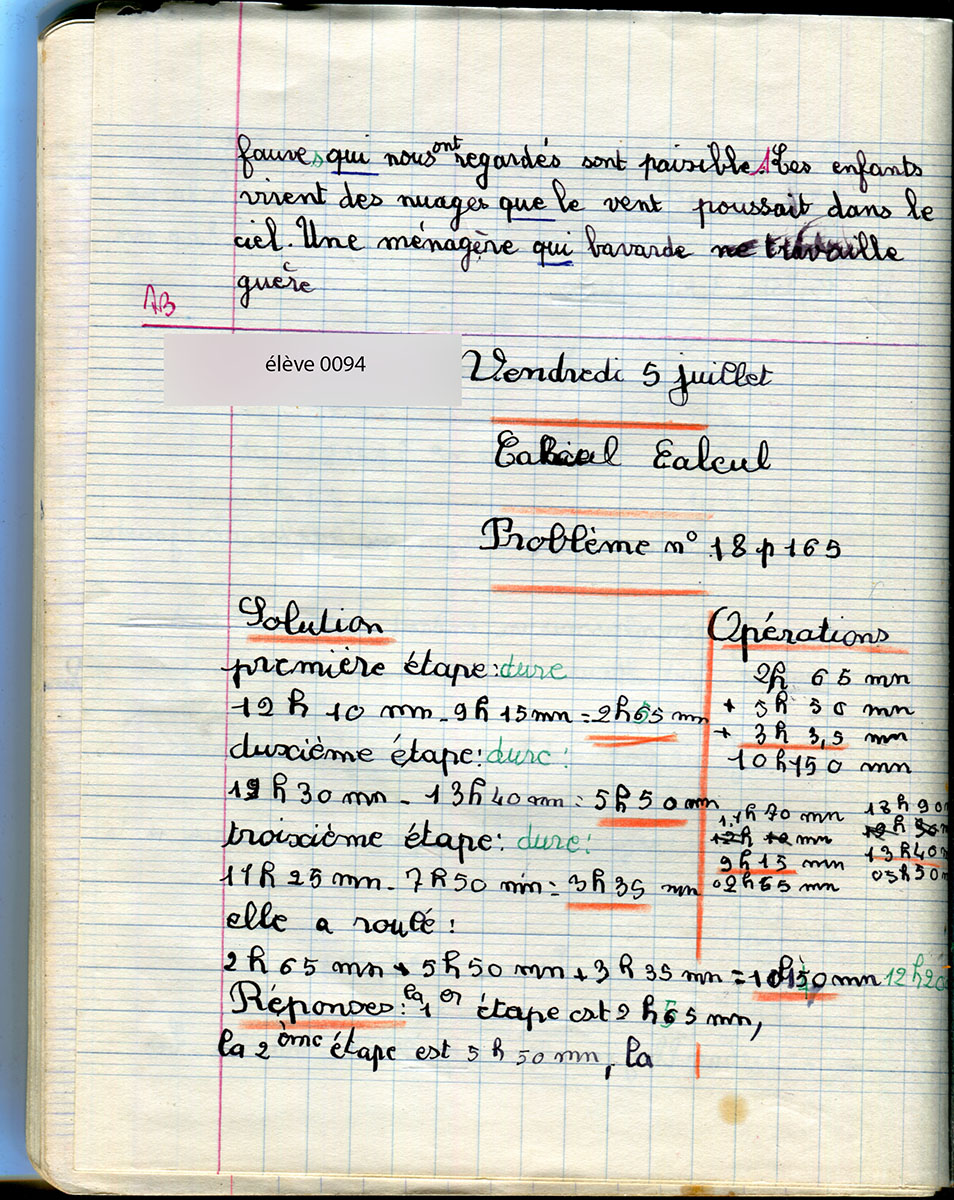 fauves qui nous ont regardés sont paisible. Les enfants
virent des nuages que le vent poussait dans le
ciel. Une ménagère qui bavarde ne travaille
guère
AB
élève 0094
Vendredi 5 juillet
Calcul
Problème n° 18 p 165
Solution
première étape: dure
12 h 10 mn - 9h 15 mn = 2h65 mn
duxième étape: dure:
19 h 30 mn - 13h40 mn = 5h50 mn
troixième étape: dure:
11h 25 mn - 7h50 min = 3h35 mn
elle a roulé:
2h 65 mn + 5h50 mn + 3h35 mn = 10h150 mn 12h20
Réponses: la 1er étape est 2h65 mn,
la 2ème étape est 5h50 mn, la
Opérations
2h 65 mn
+ 5h 50 mn
+ 3h 35 mn
10h150 mn
11h 70 mn
12h 10 mn
9h15 mn
02h65 mn
18h90
13h40
05h50